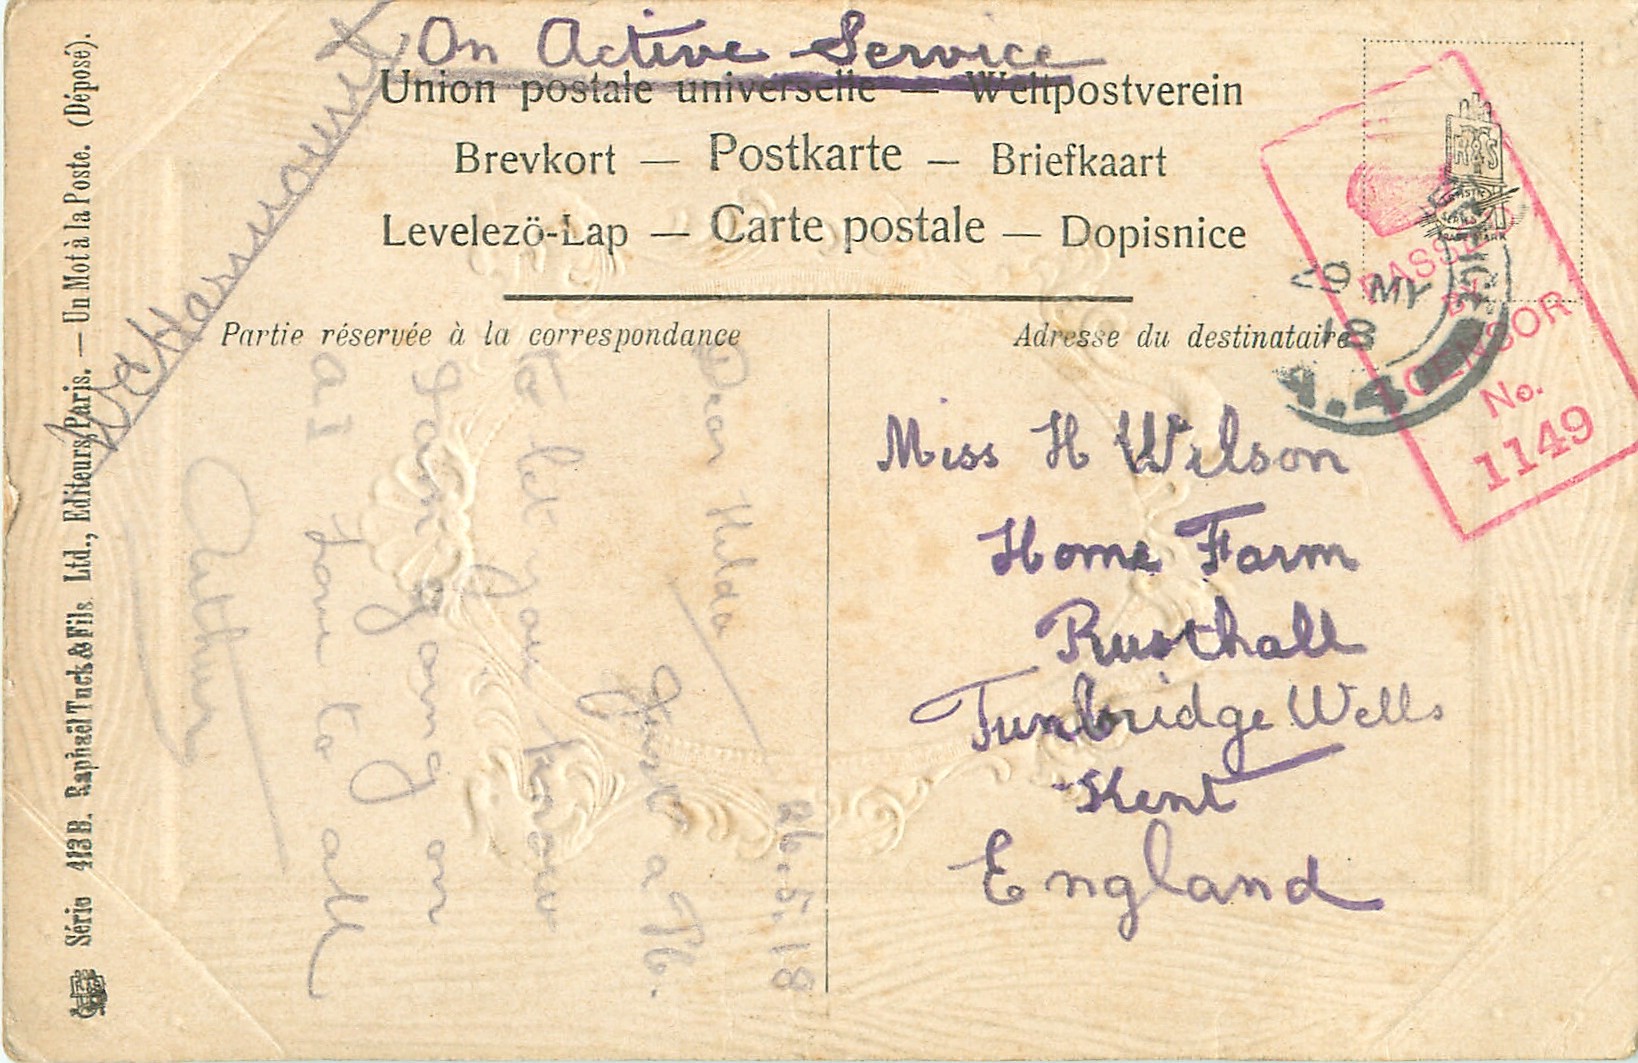 On Active Service
Union postale universelle — Weltpostverein
Brevkort — Postkarte — Briefkaart
Levelezö-Lap — Carte postale — Dopisnice
Partie réservée à la correspondance
Adresse du destinataire
26.5.18
Dear Hilda
Just a P.C.
to let you know
I am going on
all love to all
Arthur
Miss H Wilson
Home Farm
Rusthall
Tunbridge Wells
Kent
England
PASSED
BY
CENSOR
No.
1149
29 MY
18
Série 413B. Raphaël Tuck & Fils Ltd., Editeurs, Paris. — Un Mot à la Poste. (Déposé).